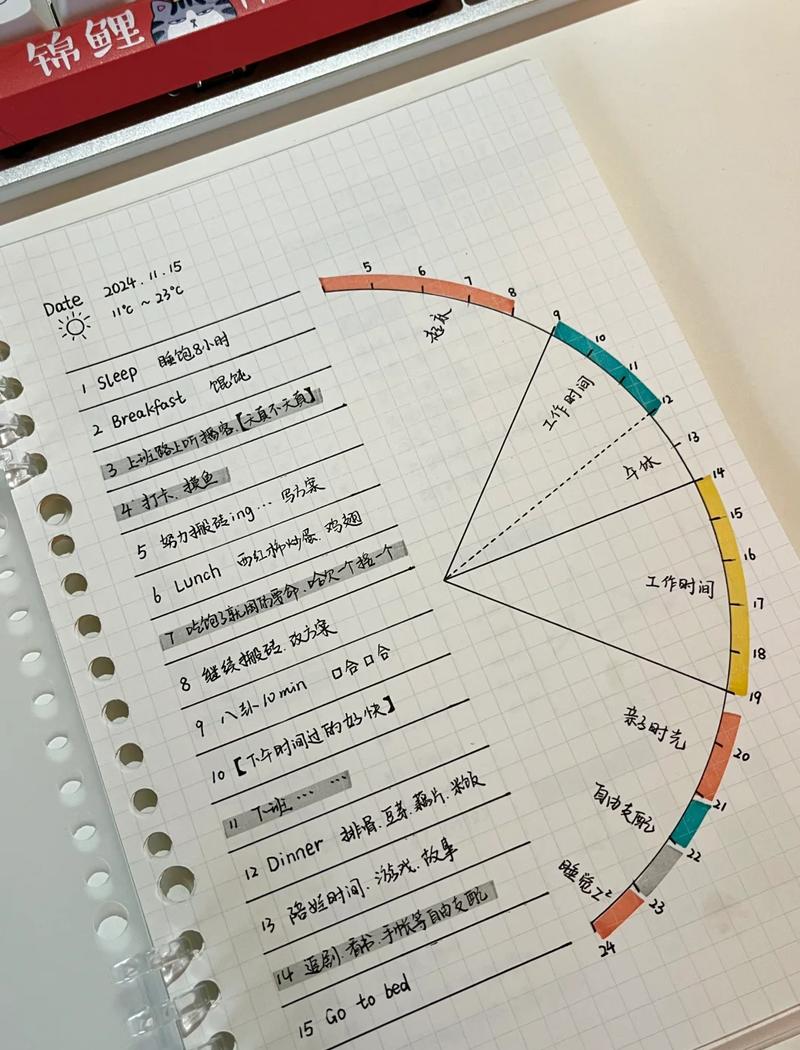 锦鲤
Date 2024.11.15
11℃ ~ 23℃
1 Sleep 睡饱8小时
2 Breakfast 馄饨
3 上班路上听播客【天真不天真】
4 打卡、摸鱼
5 努力搬砖ing... 写方案
6 Lunch 西红柿炒蛋、鸡翅
7 吃饱了就困的要命、哈欠一个接一个
8 继续搬砖、改方案
9 八卦10min 口合口合
10【下午时间过的好快】
11 下班... ...
12 Dinner 排骨、豆芽、藕片、米饭
13 陪娃时间、游戏、故事
14 追剧、看书、手帐等自由支配
15 Go to bed
5
6
7
8
起床
9
10
11
12
工作时间
13
午休
14
15
16
17
18
19
工作时间
亲子时光
20
21
自由支配
22
睡觉Z²
23
24